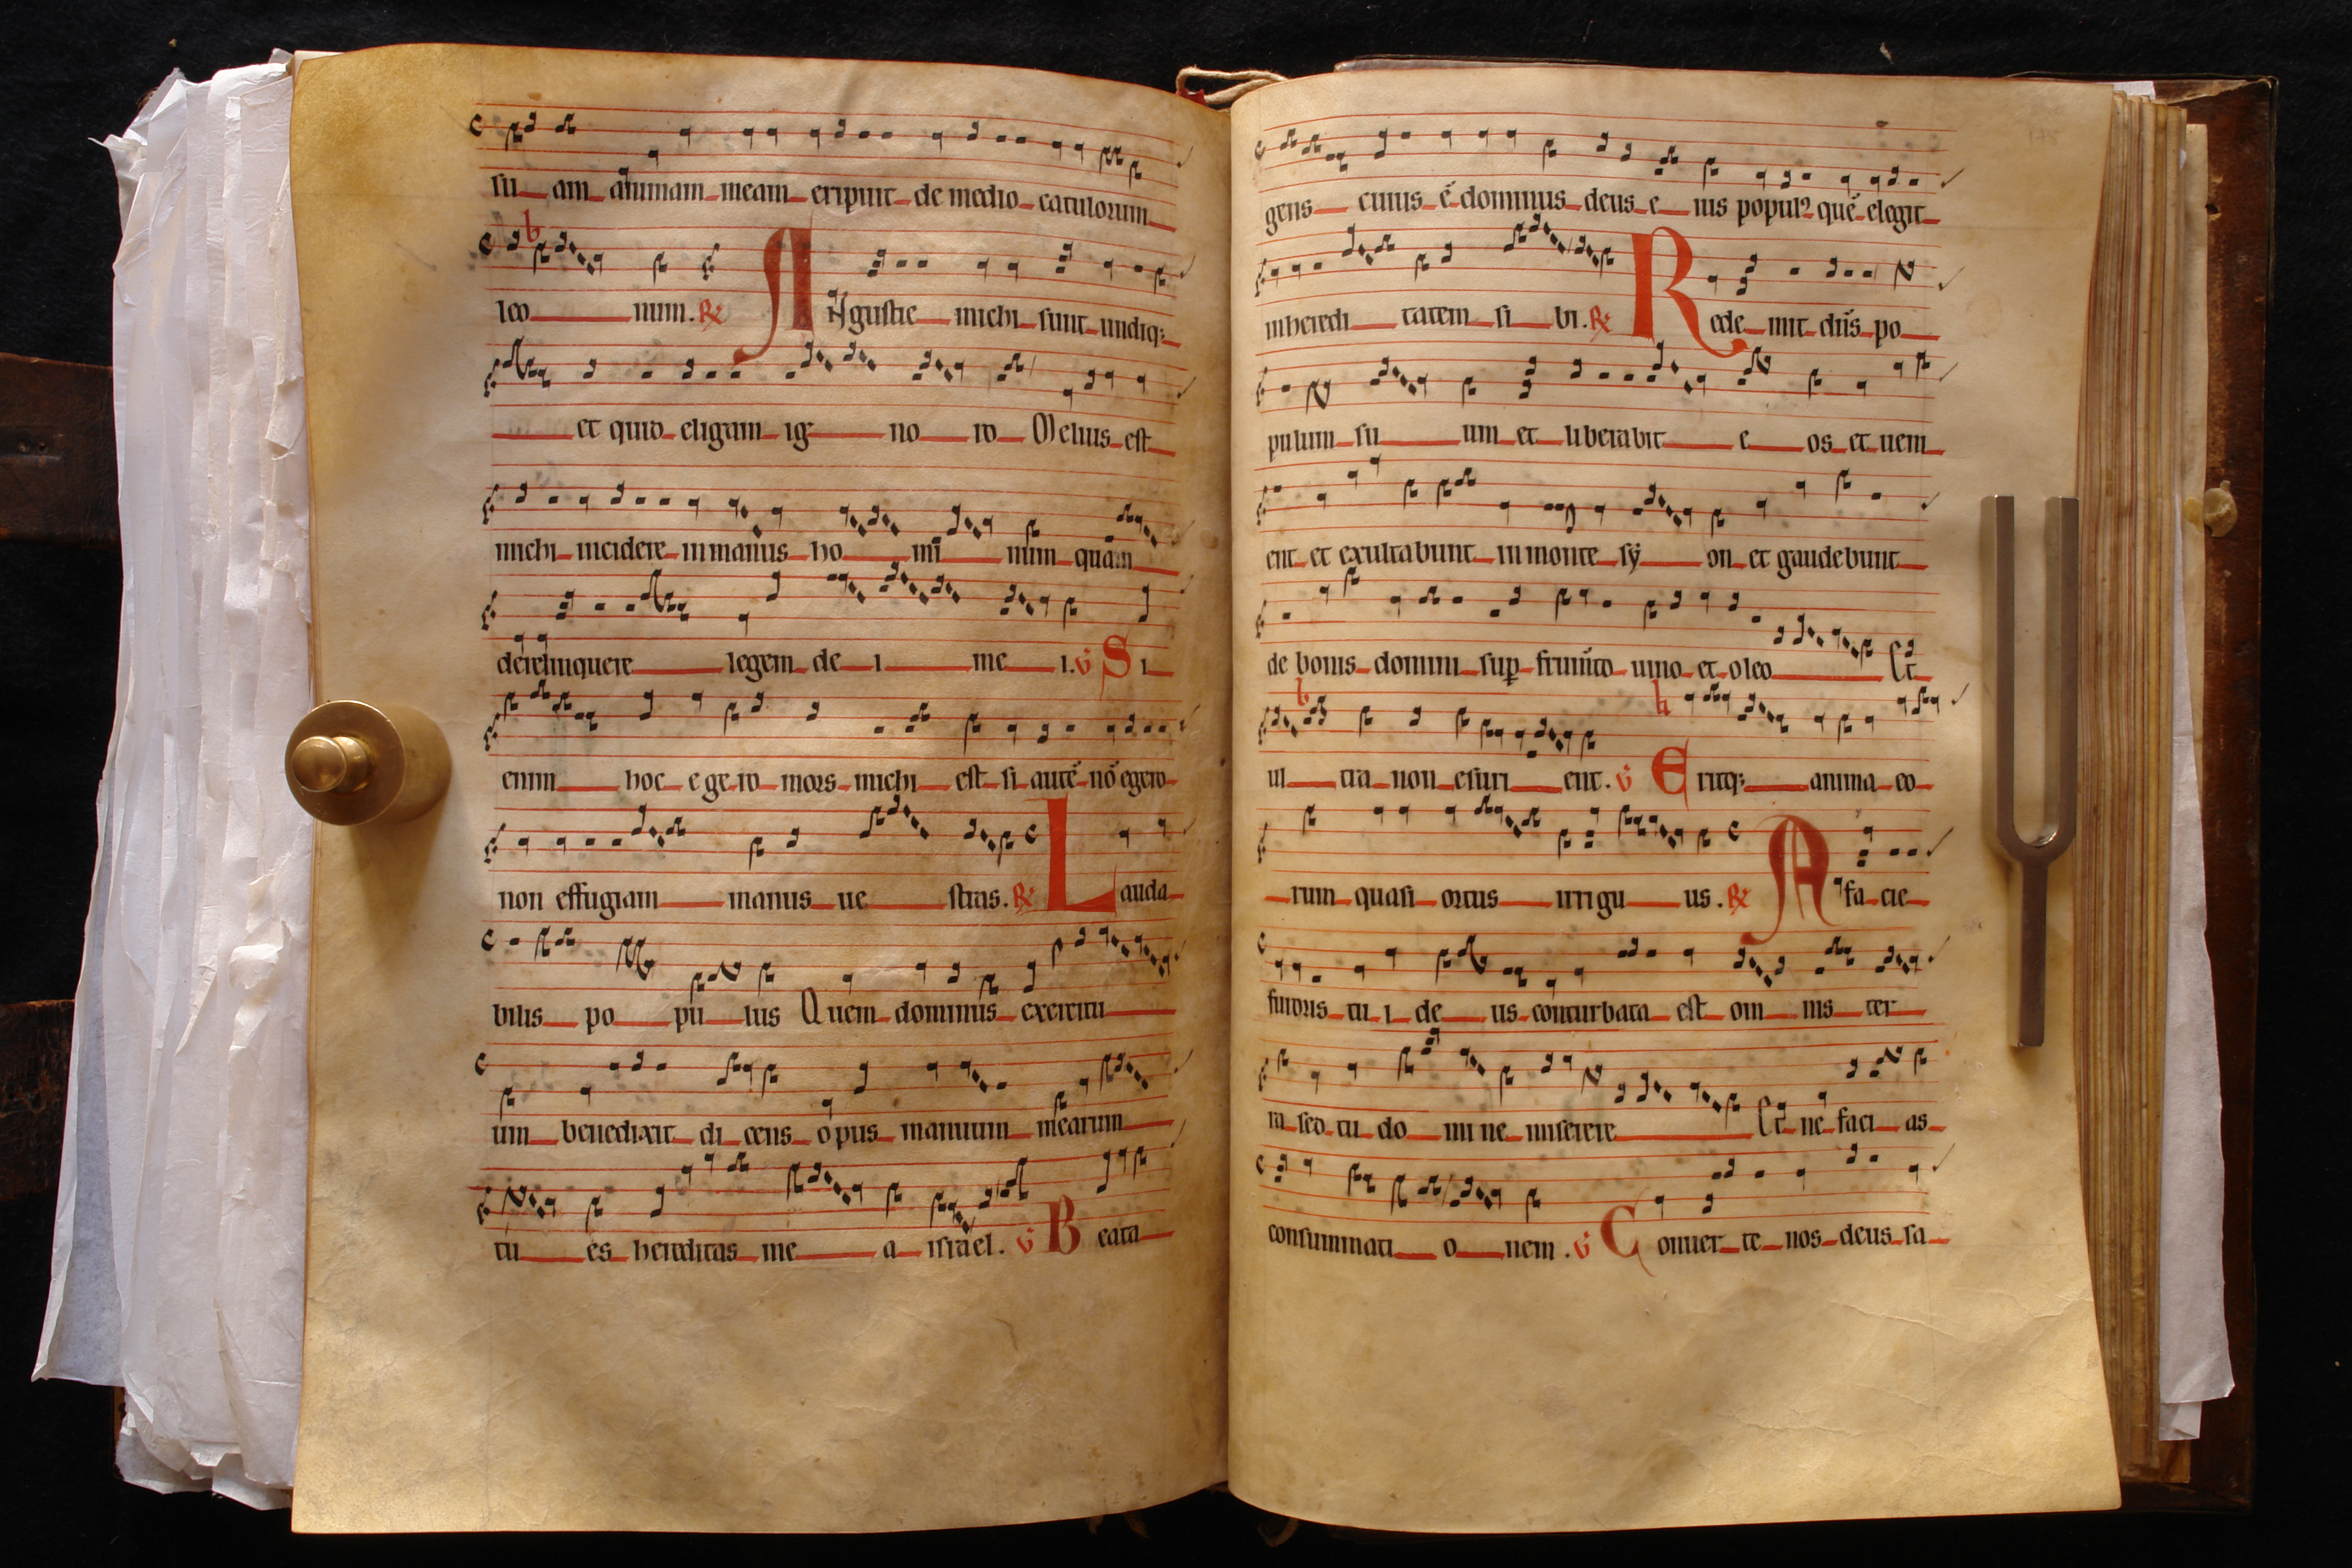 su am animam meam eripuit de medio catulorum
leo num. R⁄ Angustie michi sunt undiq;
et quid eligam ig no ro Melius est
michi incidere in manus ho mi num quam
derelinquere legem de i me i. V Si
enim hoc egero mors michi est si autē nō egero
non effugiam manus ue stras. R⁄ Lauda
bilis po pu lus Quem dominus exercitu
um benedixit di cens opus manuum mearum
tu es hereditas me a israel. V Beata
gens cuius ē dominus deus e ius populꝰ quē elegit
in heredi tatem si bi. R⁄ Rede mit dn̄s po
pulum su um et liberabit e os et ueni
ent et exultabunt in monte sy on et gaudebunt
de bonis domini suꝑ frum̄to uino et oleo Et
ul tra non esuri ent. V Eritq; anima eo
rum quasi ortus irrigu us. R⁄ A facie
furoris tu i de us conturbata est om nis ter
ra sed tu do mi ne miserere Et ne faci as
consummati o nem. V Conuer te nos deus sa